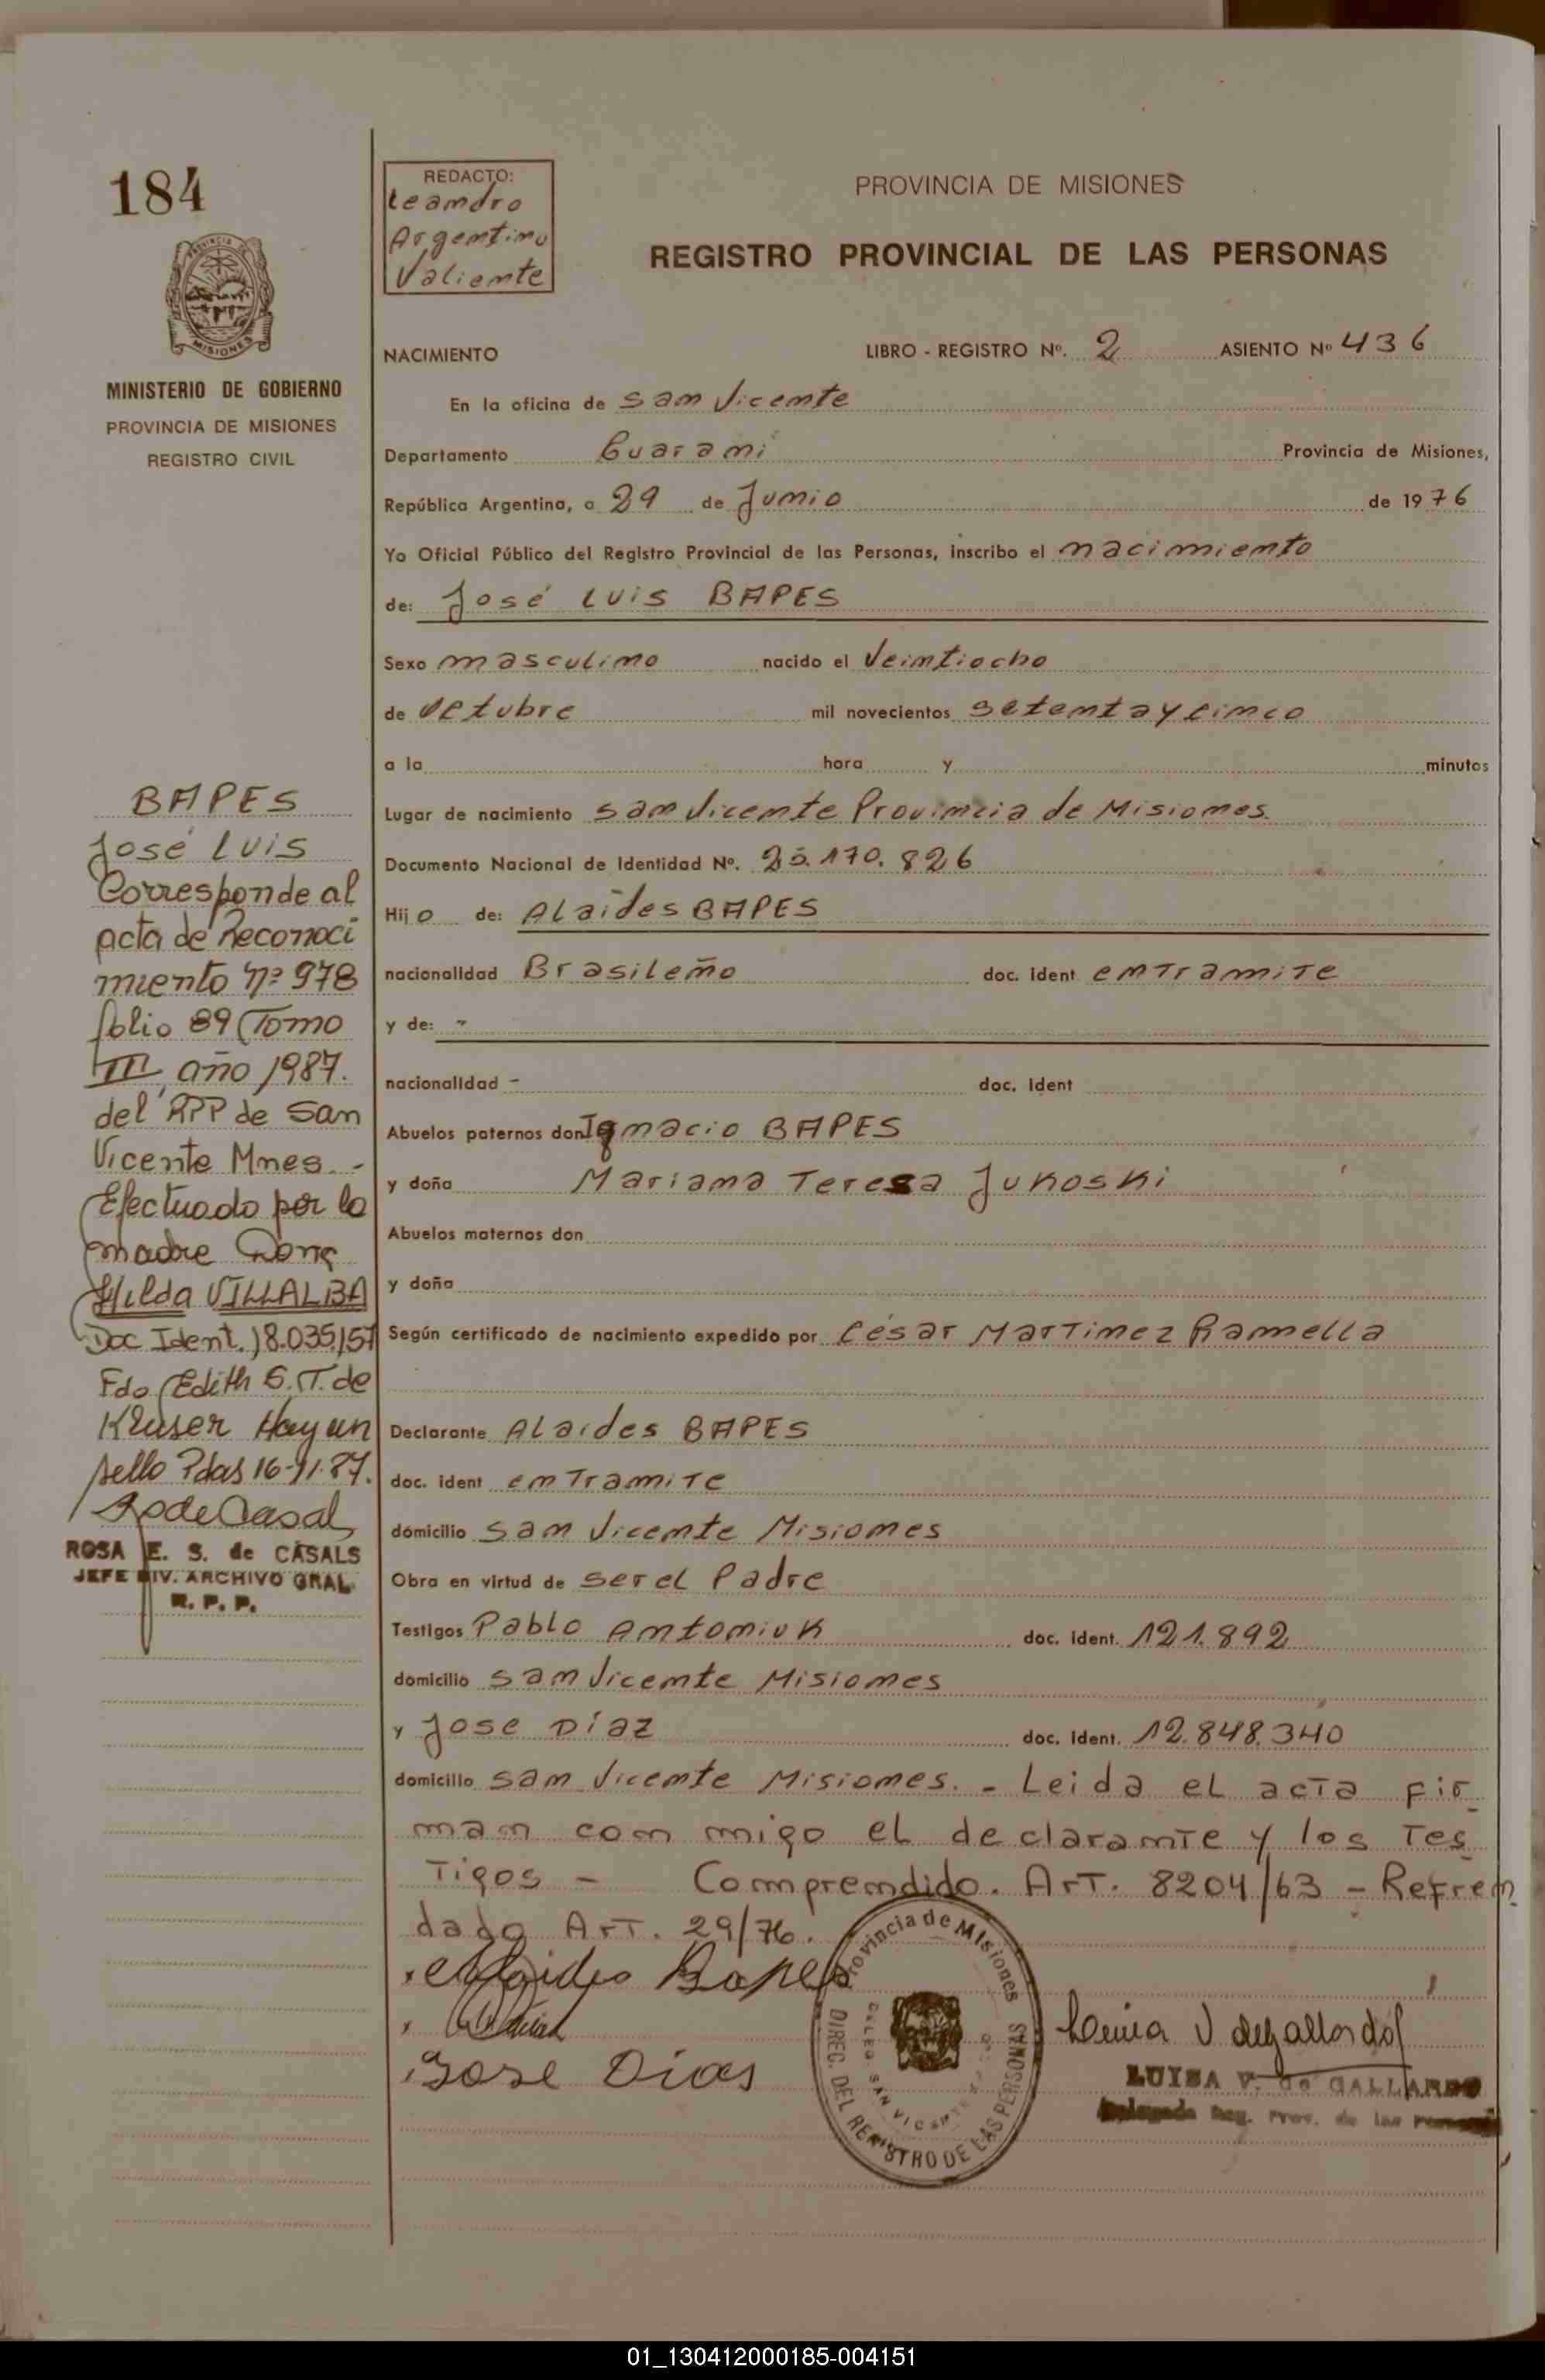 184
PROVINCIA DE
MISIONES
MINISTERIO DE GOBIERNO
PROVINCIA DE MISIONES
REGISTRO CIVIL
REDACTO:
Leandro
Argentino
Valiente
PROVINCIA DE MISIONES
REGISTRO PROVINCIAL DE LAS PERSONAS
NACIMIENTO LIBRO - REGISTRO Nº. 2 ASIENTO Nº 436
En la oficina de San Vicente
Departamento Guarani Provincia de Misiones,
República Argentina, a 29 de Junio de 1976
Yo Oficial Público del Registro Provincial de las Personas, inscribo el nacimiento
de: José Luis BAPES
Sexo masculino nacido el Veintiocho
de Octubre mil novecientos setenta y cinco
a la hora y minutos
Lugar de nacimiento San Vicente Provincia de Misiones.
Documento Nacional de Identidad Nº. 25.170.826
Hijo de: Alaides BAPES
nacionalidad Brasileño doc. ident en Tramite
y de: -
nacionalidad - doc. ident
Abuelos paternos don Ignacio BAPES
y doña Mariana Teresa Jukoski
Abuelos maternos don
y doña
Según certificado de nacimiento expedido por César Martinez Ramella
Declarante Alaides BAPES
doc. ident en Tramite
domicilio San Vicente Misiones
Obra en virtud de ser el Padre
Testigos Pablo Antoniuk doc. ident. 121.892
domicilio San Vicente Misiones
y Jose Díaz doc. ident. 12.848.340
domicilio San Vicente Misiones. - Leida el acta fir
man con migo el declarante y los Tes
Tigos - Comprendido. ArT. 8204/63 - Refren
dado ArT. 29/76.
Alaides Bapes
Jose Dias
Provincia de Misiones
DIREC. DEL REGISTRO DE LAS PERSONAS
DELEG. SAN VICENTE
Luisa V de Gallardo
LUISA V. de GALLARDO
Delegada Reg. Prov. de las Personas
BAPES
José Luis
Corresponde al
acta de Reconoci
miento Nº 978
folio 89 Tomo
III, año 1987.
del RPP de San
Vicente Mnes. -
Efectuado por la
madre Dona
Hilda VILLALBA
Doc Ident. 18.035.157
Fdo. Edith G. T. de
Kruser Hay un
sello Pdas 16-11-87.
R S de Casals
ROSA E. S. de CASALS
JEFE DIV. ARCHIVO GRAL.
R. P. P.
01_130412000185-004151